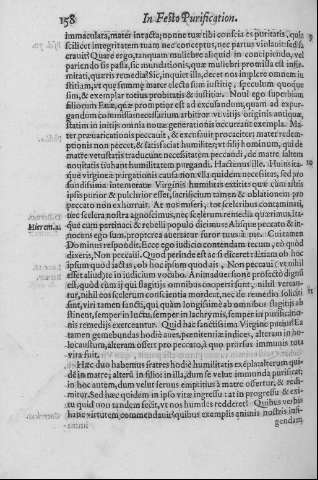 158 In Festo Purification.
immaculata, mater intacta; nonne tuæ tibi conscia es puritatis, quia
scilicet integritatem tuam nec conceptus, nec partus violavit sed sa-
cravit? Quare ergo, tanquam muliebre aliquid in concipiendo, vel
pariendo sis passa, sic mundationis, quæ muliebri promissa est infir-
mitati, quæris remedia? Sic, inquit illa, decet nos implere omnem iu-
stitiam, vt quæ summæ mater electa sum iustitiæ, speculum quoque
sim, & exemplar totius probitatis & iustitiæ. Noui ego superbiam
filiorum Euæ, quæ promptior est ad excusandum, quam ad expur-
gandum commissa: necessarium arbitror vt vitijs originis antiquæ,
statim in initijs omnia nouæ generationis occurrant exempla. Ma-
ter præuaricationis peccauit, & excusauit procaciter: mater redem-
ptionis non peccet, & satisfaciat humiliter; vt filij hominum, qui de
matre vetustatis traducunt necessitatem peccandi, de matre saltem
nouitatis trahant humilitatem purgandi. Hactenus illa. Huius ita-
que virgineæ purgationis causa non vlla quidem necessitas, sed pro
fundissima intemeratæ Virginis humilitas extitit: quæ cum altaris
ipsis purior & pulchrior esset, sacrificium tamen & oblationem pro
peccato non exhorruit. At nos miseri, tot sceleribus contaminati,
nec scelera nostra agnoscimus, nec scelerum remedia quærimus, ita-
Hierem. 2. que cum pertinaci & rebelli populo dicimus: Absque peccato & in-
nocens ego sum, propterea auertatur furor tuus à me. Cui tamen
Dominus respondit, Ecce ego iudicio contendam tecum, eò quòd
dixeris, Non peccaui. Quod perinde est ac si diceret: Etiam ob hoc
ipsum quod iactas, ob hoc ipsum quod ais, Non peccaui: vt nihil
esset aliud, te in iudicium vocabo. Animaduersione profectò dignū
est, quòd cum ij qui flagitijs omnibus coopertisunt, nihil verean-
tur, nihil eos scelerum conscientia mordeat, nec de remedio soliciti
sint, viri tamen sancti, qui quàm longissimè ab omnibus flagitijs ab
stinent, semper in luctu, semper in lachrymis, semper in purificatio-
nis remedijs exerceantur. Quid hac sanctissima Virgine purius? Ea
tamen gemebundas hodiè aues, pœnitentiæ indices, alteram in ho-
locaustum, alteram offert pro peccato, à quo prorsus immunis tota
vita fuit.
Hæc duo habemus fratres hodiè humilitatis exēpla: alterum qui-
dē in matre; alterū in filio: in illa, dum se velut immunda purificat;
in hoc autem, dum velut seruus emptitius à matre offertur, & redi-
mitur. Sed hæc quidem in ipso vitæ ingressu: at in progressu & exi-
tu quid non tandem fecit, vt nos humiles redderet? Quibus verbis
hanc virtutem commendauit? quibus exemplis animis nostris infi-
gendam